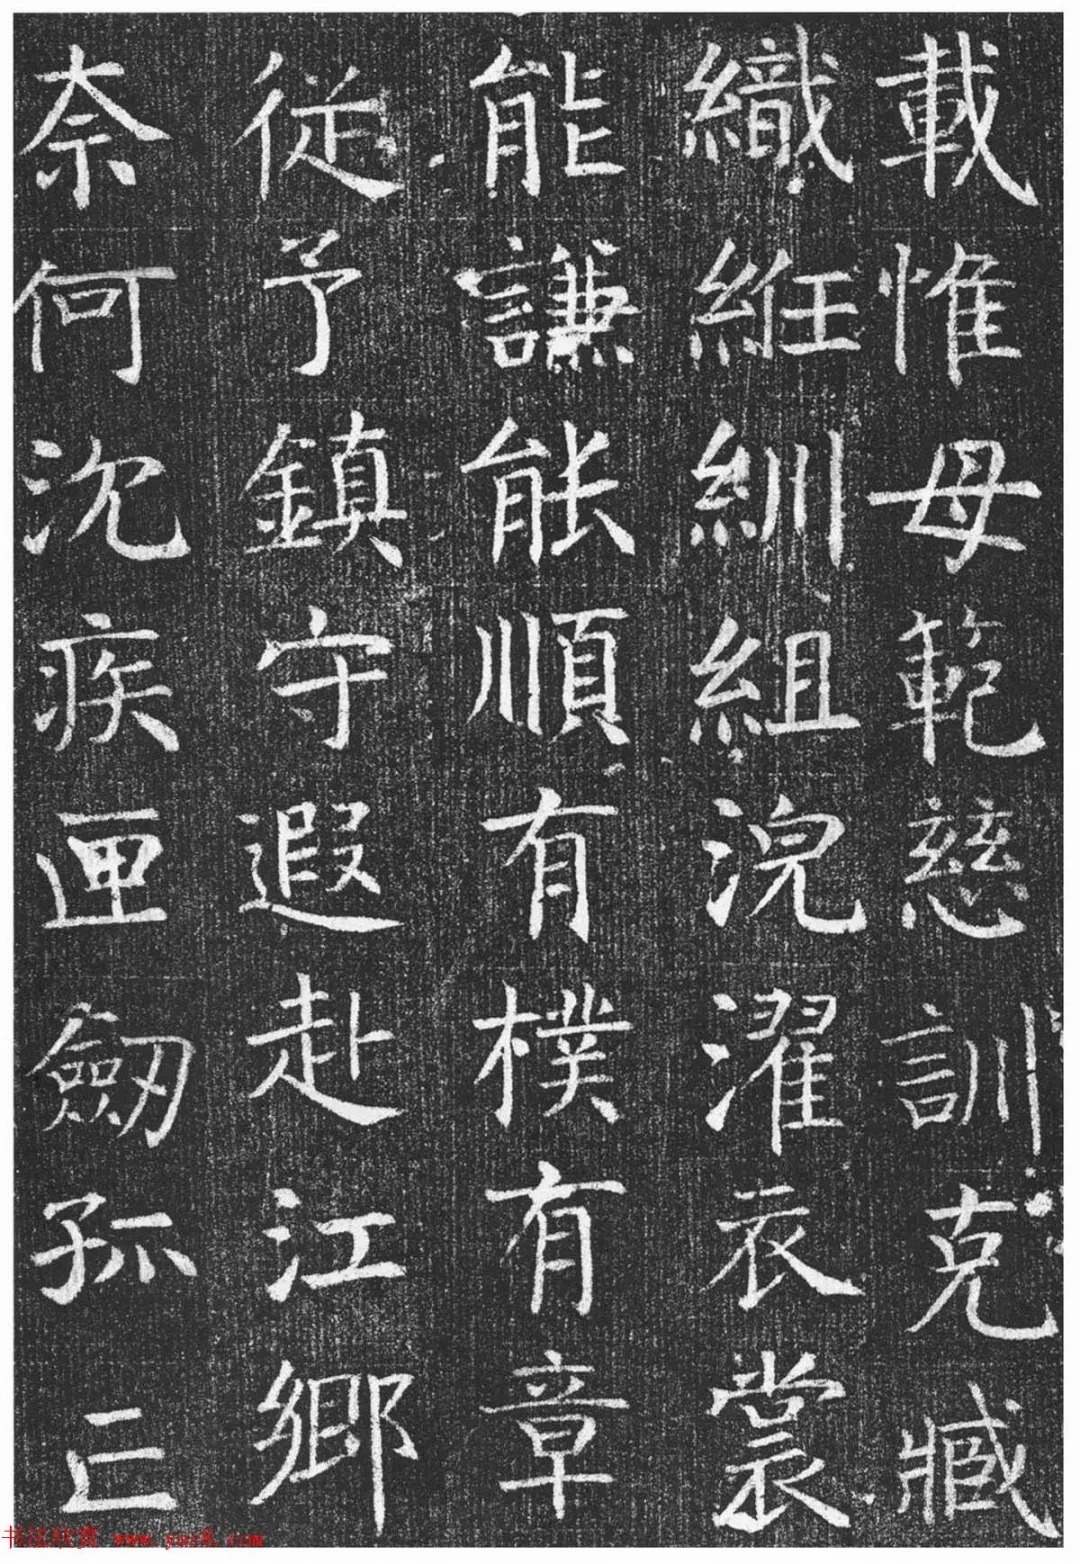 載惟母範慈訓克臧
織紝紃組浣濯衣裳
能謙能順有樸有章
從予鎮守遐赴江鄉
奈何沈疾匣劒孤亡
书法欣赏 www.yac8.com